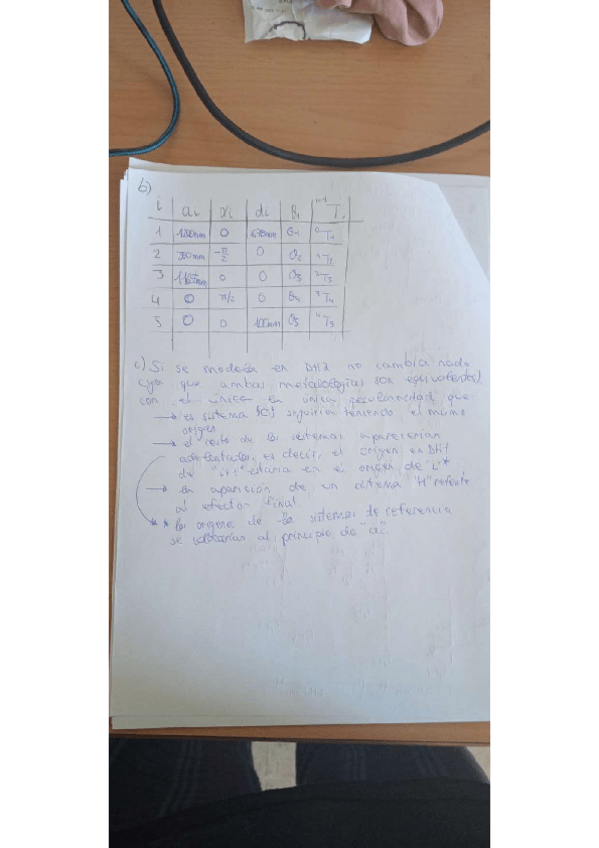 b)
i | ai | αi | di | θi | i-1Ti
1 | 0 | θ1 | 0T1
2 | -π/2 | 0 | θ2 | 1T2
3 | 0 | 0 | θ3 | 2T3
4 | 0 | π/2 | 0 | θ4 | 3T4
5 | 0 | 0 | 100mm | θ5
c) Si se modela en DH2 no cambia nada
(ya que ambas metodologías son equivalentes)
con única peculiaridad que
→ sistema seguiría teniendo el mismo
origen
→ el resto de los sistemas aparecerían
adelantados, es decir, el origen en DH
de estaría en el origen de
→ la aparición de un sistema "H" referente
al efector final
* los orígenes de los sistemas de referencia
se colocarían al principio de